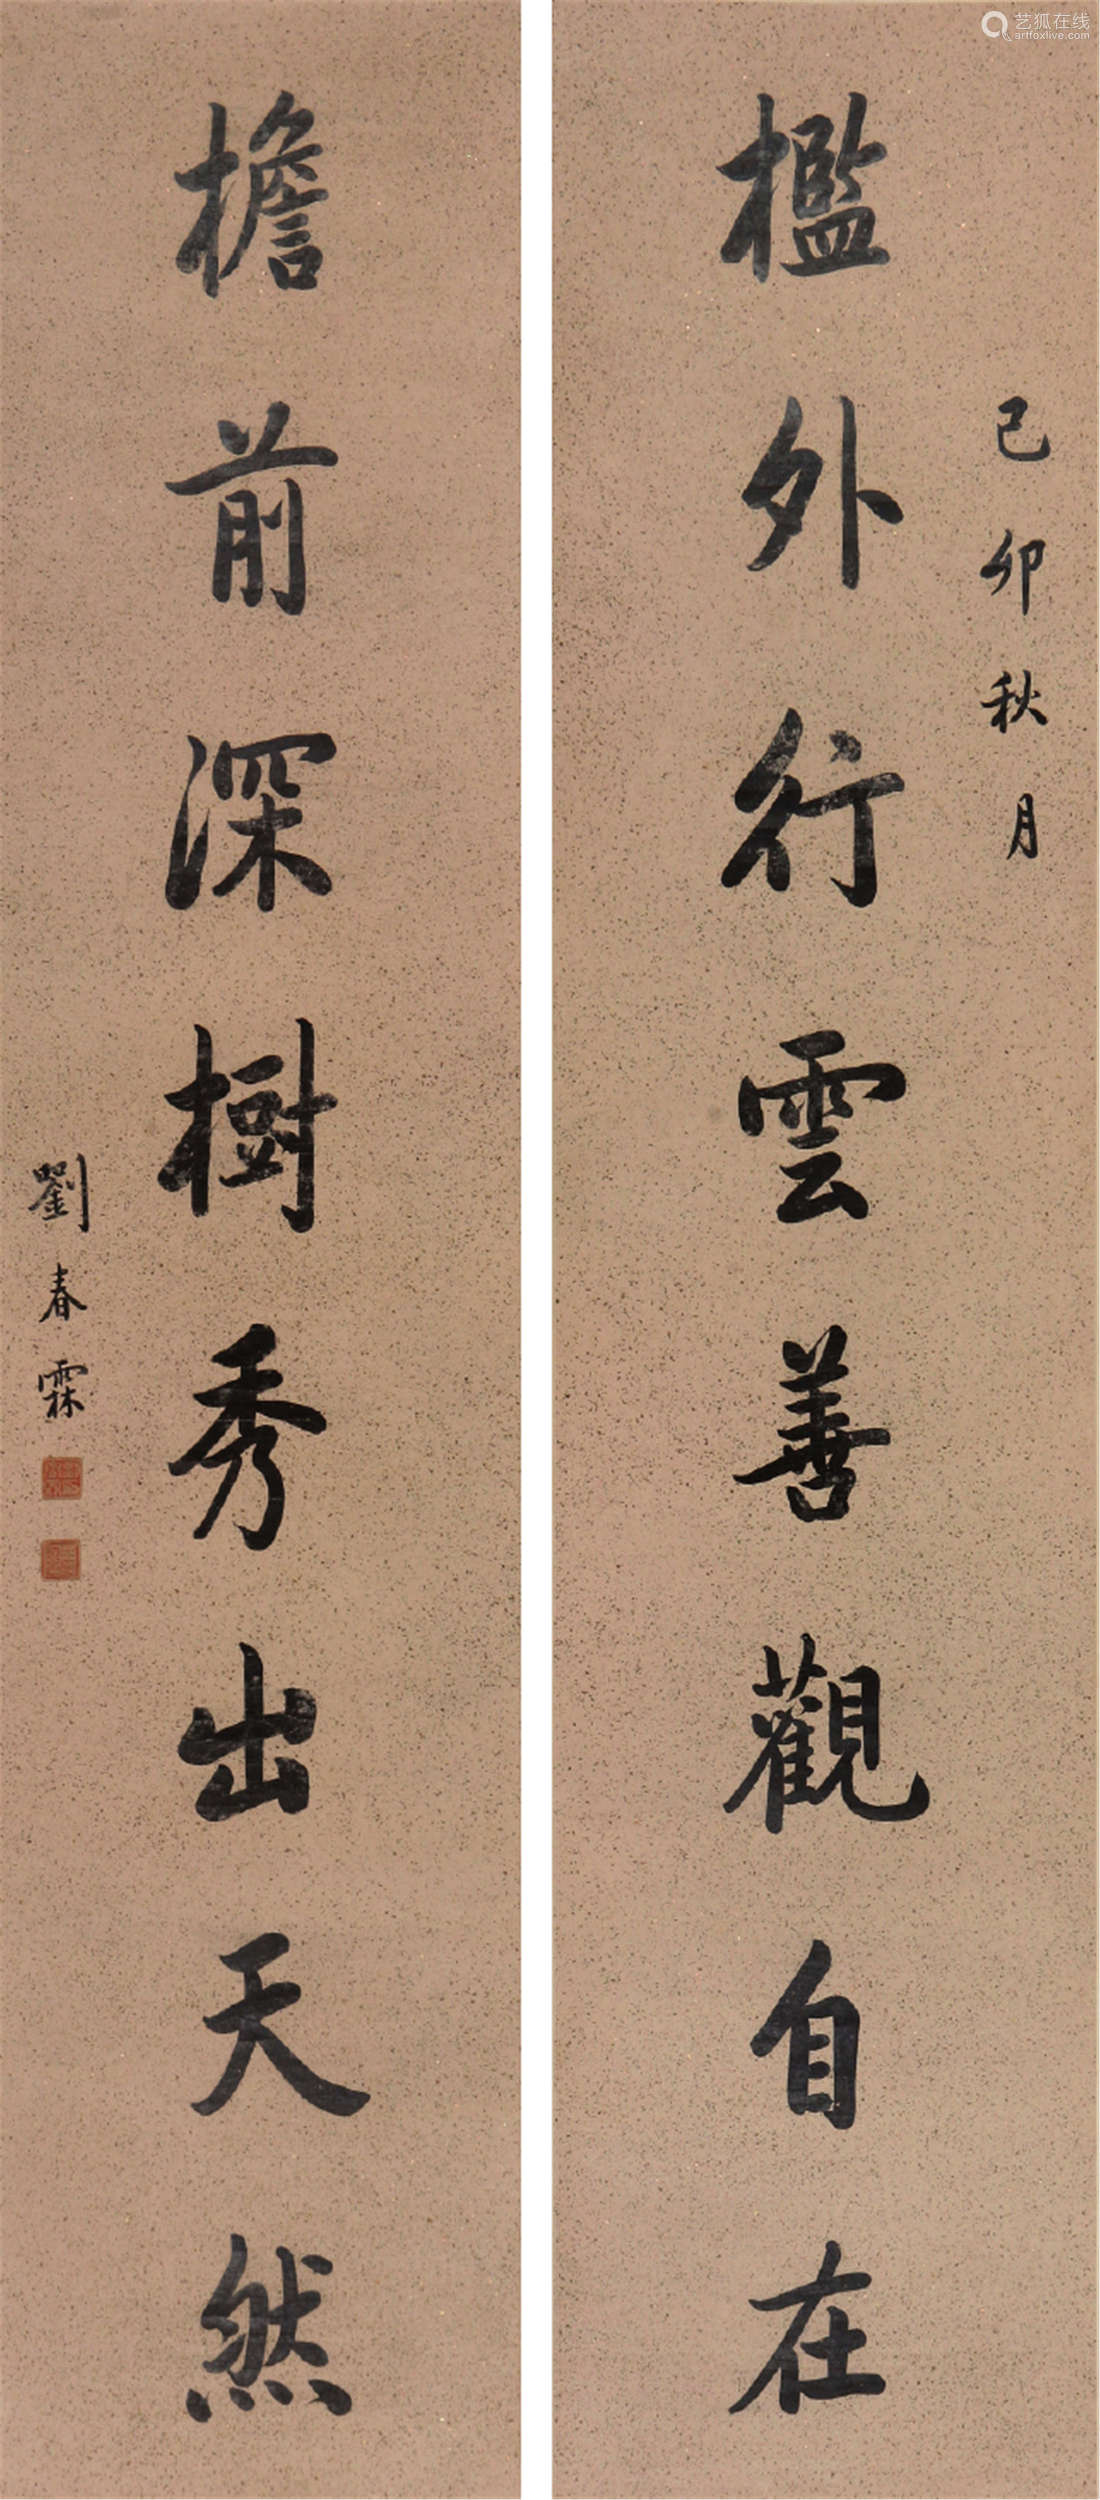 艺狐在线
artfoxlive.com
己卯秋月
檻外行雲善觀自在
檐前深樹秀出天然
劉春霖